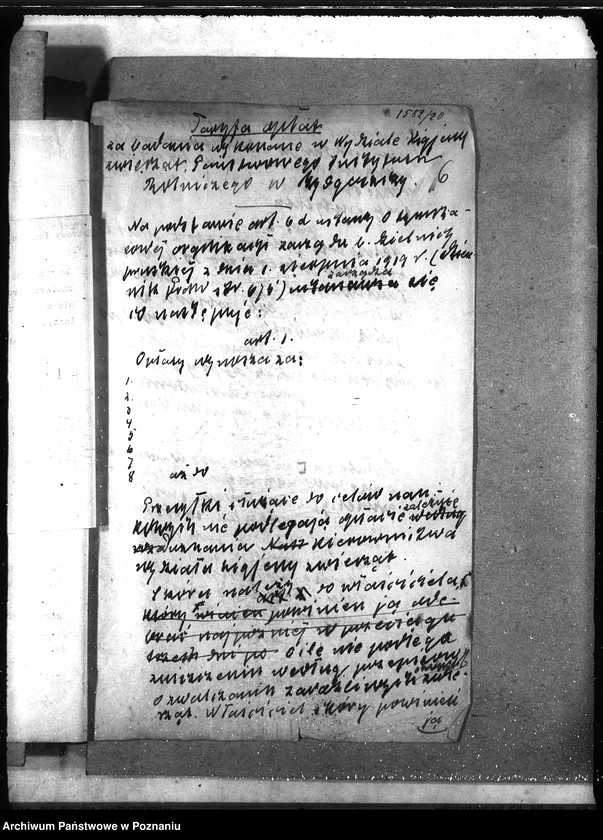 1582/20
Taryfa opłat
za badania wykonane w Wydziale Higjeny
zwierząt Państwowego Instytutu
Rolniczego w Bydgoszczy.
6
Na podstawie art. 6 d ustawy o tymcza-
sowej organizacji zarządu b. dzielnicy
pruskiej z dnia 1. sierpnia 1919 r. (Dzien
nik Praw Nr. 6/6) ustanawia się
zarządza
co następuje:
art. 1.
Opłaty wynoszą za:
1.
2.
3
4
5
6
7
8
aż do
Przesyłki służące do celów nau-
kowych nie podlegają opłacie według
zależnie
uznania Kierownictwa
wydziału higjeny zwierząt
Skóra należy do właściciela,
który winien powinien ją ode-
brać najpóźniej w przeciągu
trzech dni po o ile nie podlega
zniszczeniu według przepisów
o zwalczaniu zaraźliwych zwie-
rząt. Właściciel skóry powinien
ją
Archiwum Państwowe w Poznaniu